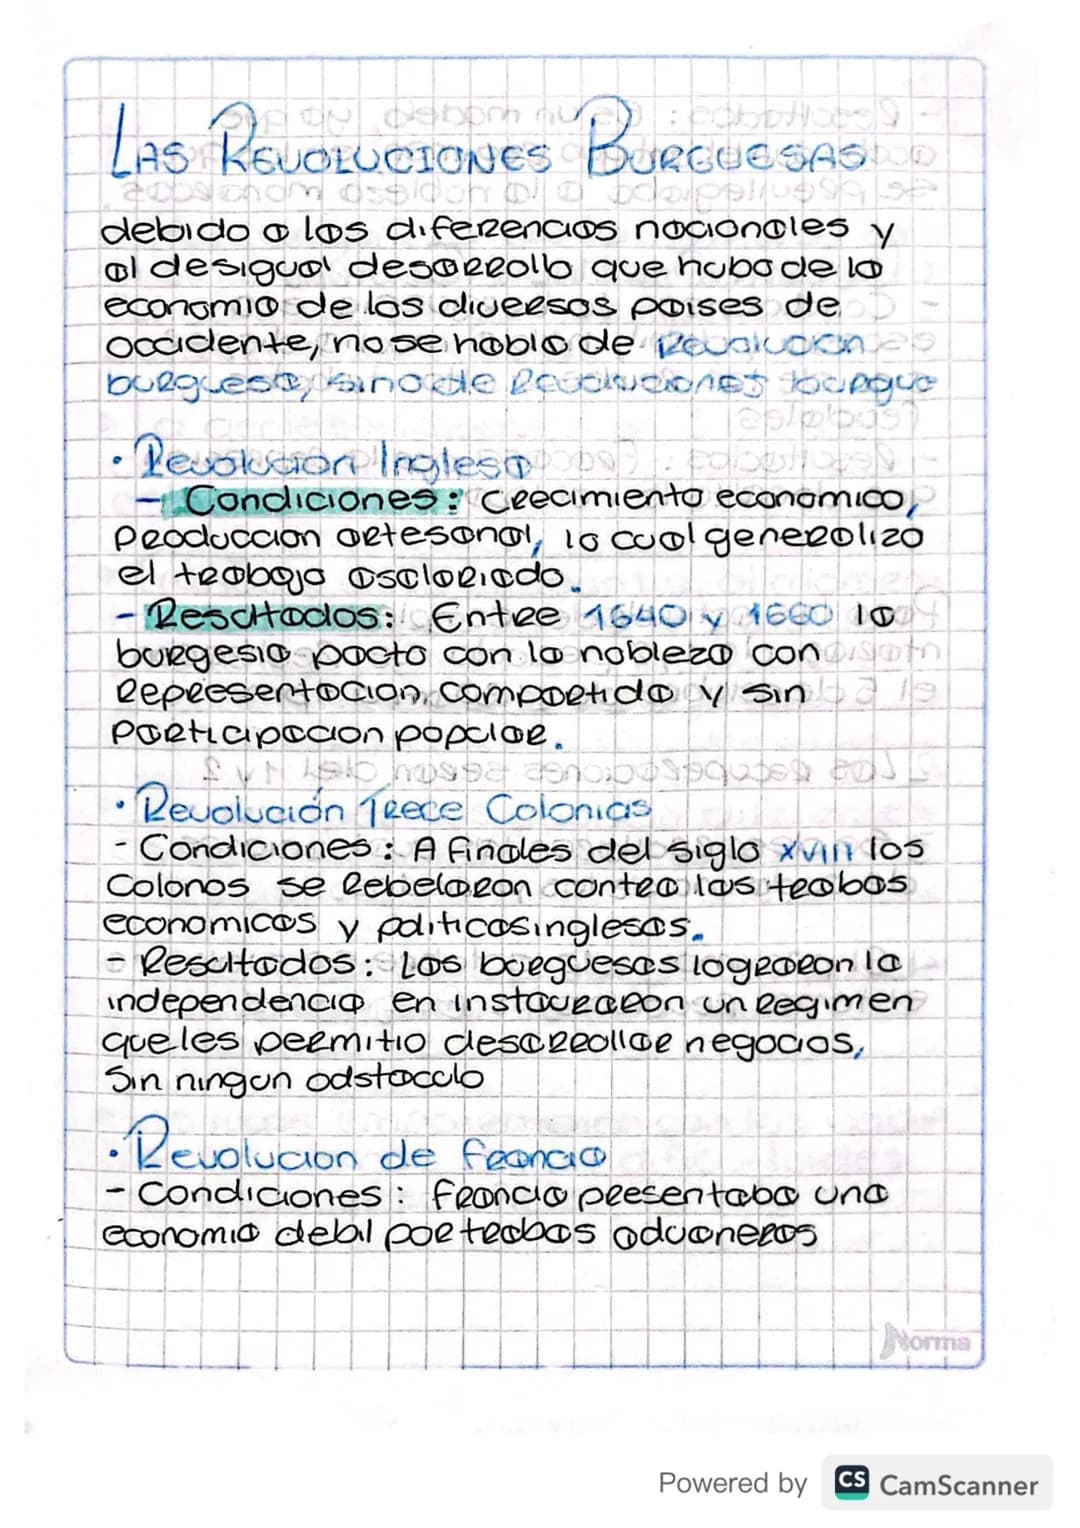 LAS REVOLUCIONES BURGUESAS
debido a las diferencias nacionales y
al desigual desarrollo que hubo de la
economia de los diversos paises de
occidente, no se habla de Revolucion
burguesa, sino de Revoluciones burgue
• Revolucion Inglesa
- Condiciones: Crecimiento economico,
Produccion artesanal, lo cual generalizo
el trabajo asalariado.
- Resultados: Entre 1640 y 1660 la
burgesia pacto con la nobleza con
Representacion compartida y sin
Participacion popular.
• Revolución Trece Colonias
- Condiciones: A finales del siglo XVIII los
Colonos se Rebelaron contra las trabas
economicas y politicas inglesas.
- Resultados: Las burguesas lograron la
independencia en instauraron un Regimen
que les permitio desarrollar negocios,
Sin ningun odstaculo
• Revolucion de Francia
- Condiciones: Francia presentaba una
economia debil por trabas aduaneras
Norma
Powered by CS CamScanner